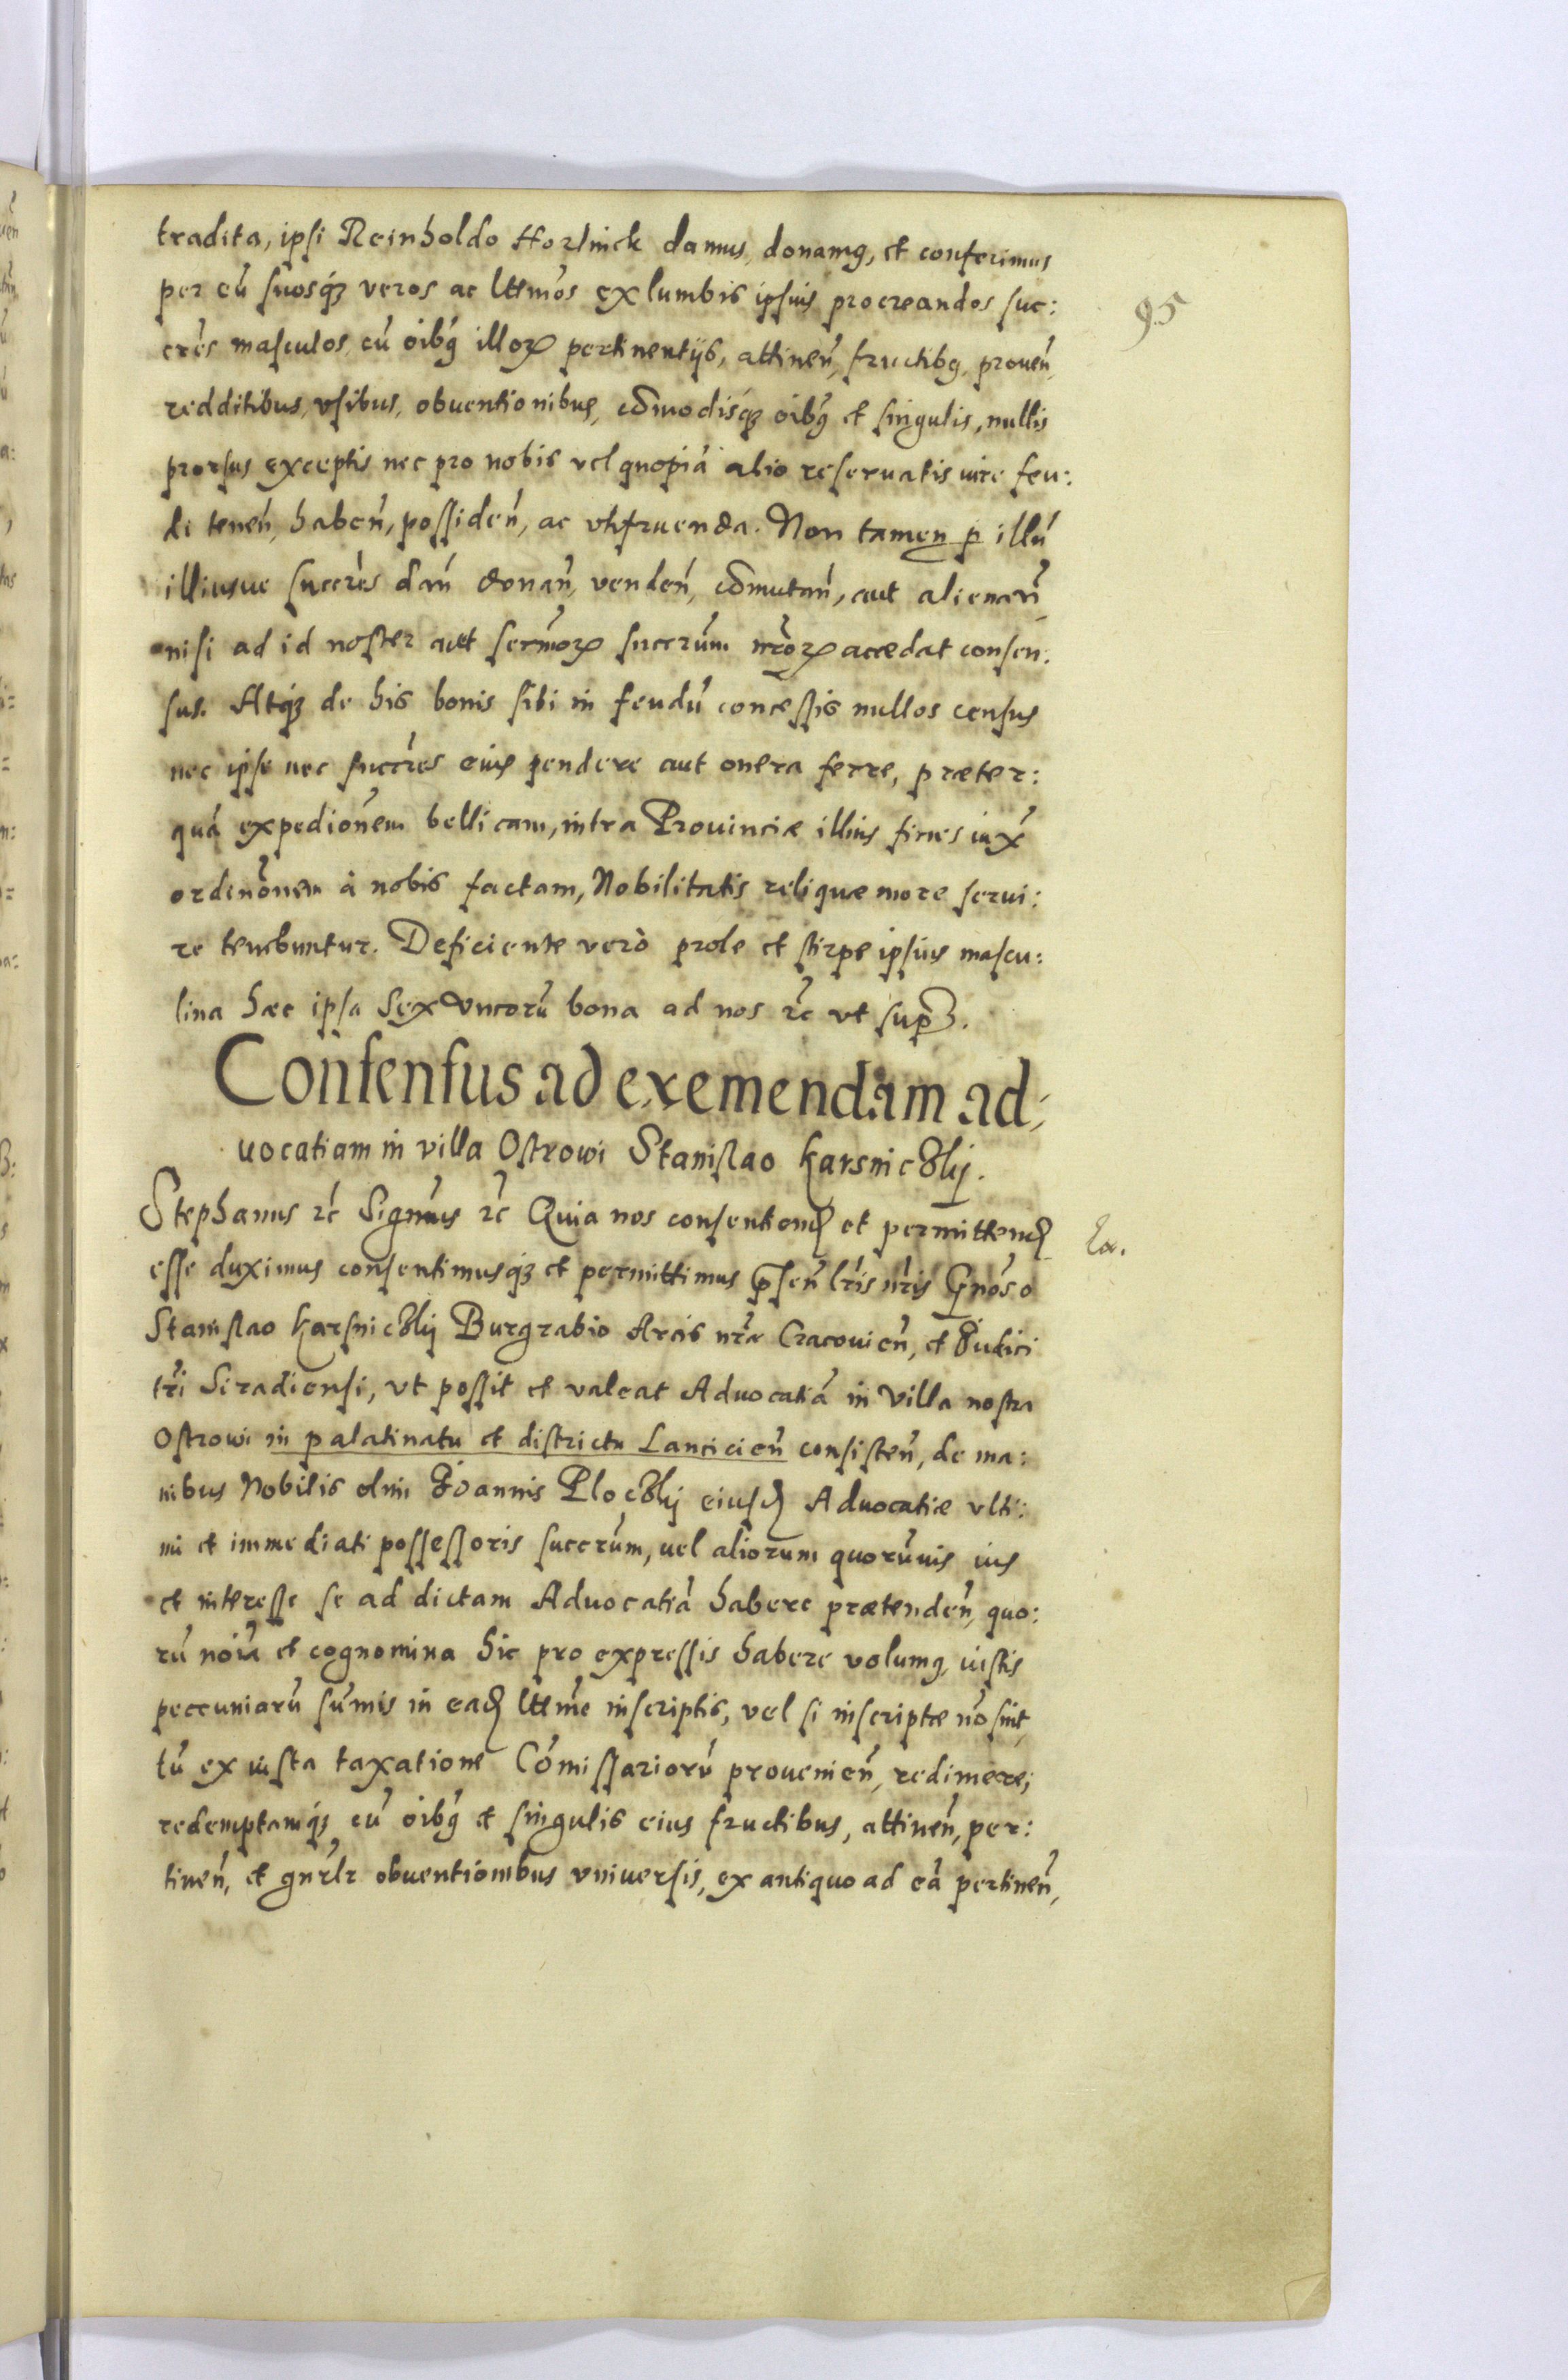 tradita, ipsi Reinholdo Horlinck damus, donamꝰ, et conferimus
95
per eũ suosqꝫ veros ac lttimos ex lumbis ipsius procreandos suc:
crẽs masculos, cũ oĩbꝰ illoꝝ pertinentijs, attineñ, fructibꝰ, proueñ,
redditibus, vsibus, obuentionibus, cõmodisqꝫ oĩbꝰ et singulis, nullis
prorsus exceptis nec pro nobis vel quopiã alio reseruatis iure feu:
di teneñ, habeñ, possideñ, ac vtifruenda. Non tamen ꝑ illũ
illiusue succrẽs dañ donañ, vendeñ, cõmutañ, aut alienañ,
nisi ad id noster aut sermoꝝ succrũm nrõꝝ accedat consen:
sus. Atqꝫ de his bonis sibi in feudũ concessis nullos census
nec ipse nec succrẽs eius pendere aut onera ferre, præter:
quã expediõnem bellicam, intra Prouinciæ illius fines iux̃
ordinõnem à nobis factam, Nobilitatis reliquæ more serui:
re tenebuntur. Deficiente verò prole et stirpe ipsius mascu:
lina hæc ipsa sex Vncorũ bona ad nos ꝛc̃ vt supꝫ.
Consensus ad exemendam ad,
uocatiam in villa Ostrowi Stanislao Karsniczkij.
Stephanus ꝛc̃ Signmus ꝛc̃ Quia nos consentiend et permittend
La.
esse duximus consentimusqꝫ et permittimus pñseñ lrĩs nrĩs Gñoso
Stanislao Karsniczkij Burgrabio Arcis nrẽ Cracouieñ, et Iudici
trĩ Siradiensi, vt possit et valeat Aduocatiã in Villa nostra
Ostrowi in palatinatu et districtu Lancicieñ consisteñ, de ma:
nibus Nobilis olim Ioannis Ploczkij eiusd Aduocatiæ vlti:
mi et immediati possessoris succrũm, uel aliorum quorũuis ius
et interesse se ad dictam Aduocatiã habere prætendeñ, quo:
rũ noĩa et cognomina hic pro expressis habere volumꝰ, iustis
peccuniarũ sũmis in ead lttime inscriptis, vel si inscriptæ nõ sint,
tũ ex iusta taxatione Cõmissariorũ prouenieñ, redimere;
redemptamqꝫ cũ oĩbꝰ et singulis eius fructibus, attineñ, per:
tineñ, et gnrlr obuentionibus vniuersis, ex antiquo ad eã pertineñ,